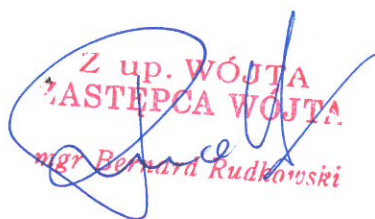 Z up. WÓJTA
ZASTĘPCA WÓJTA
mgr Bernard Rudkowski